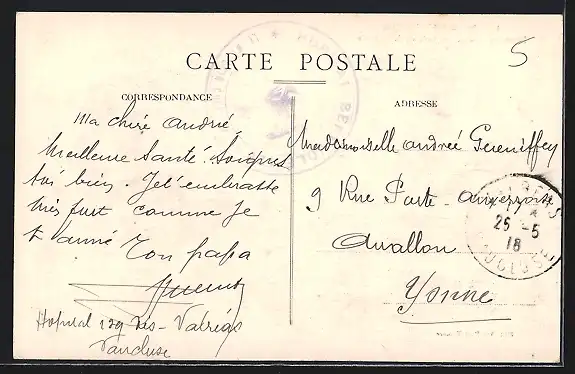 5
CARTE POSTALE
CORRESPONDANCE
ADRESSE
Ma chère Andrée,
Meilleure Santé. Soignes
toi bien. Je t'embrasse
très fort comme Je
t'aime Ton papa
Hopital 129 bis - Valréas
Vaucluse
Mademoiselle Andrée
9 Rue Porte - Auxerroise
Avallon
Yonne
25 - 5
18